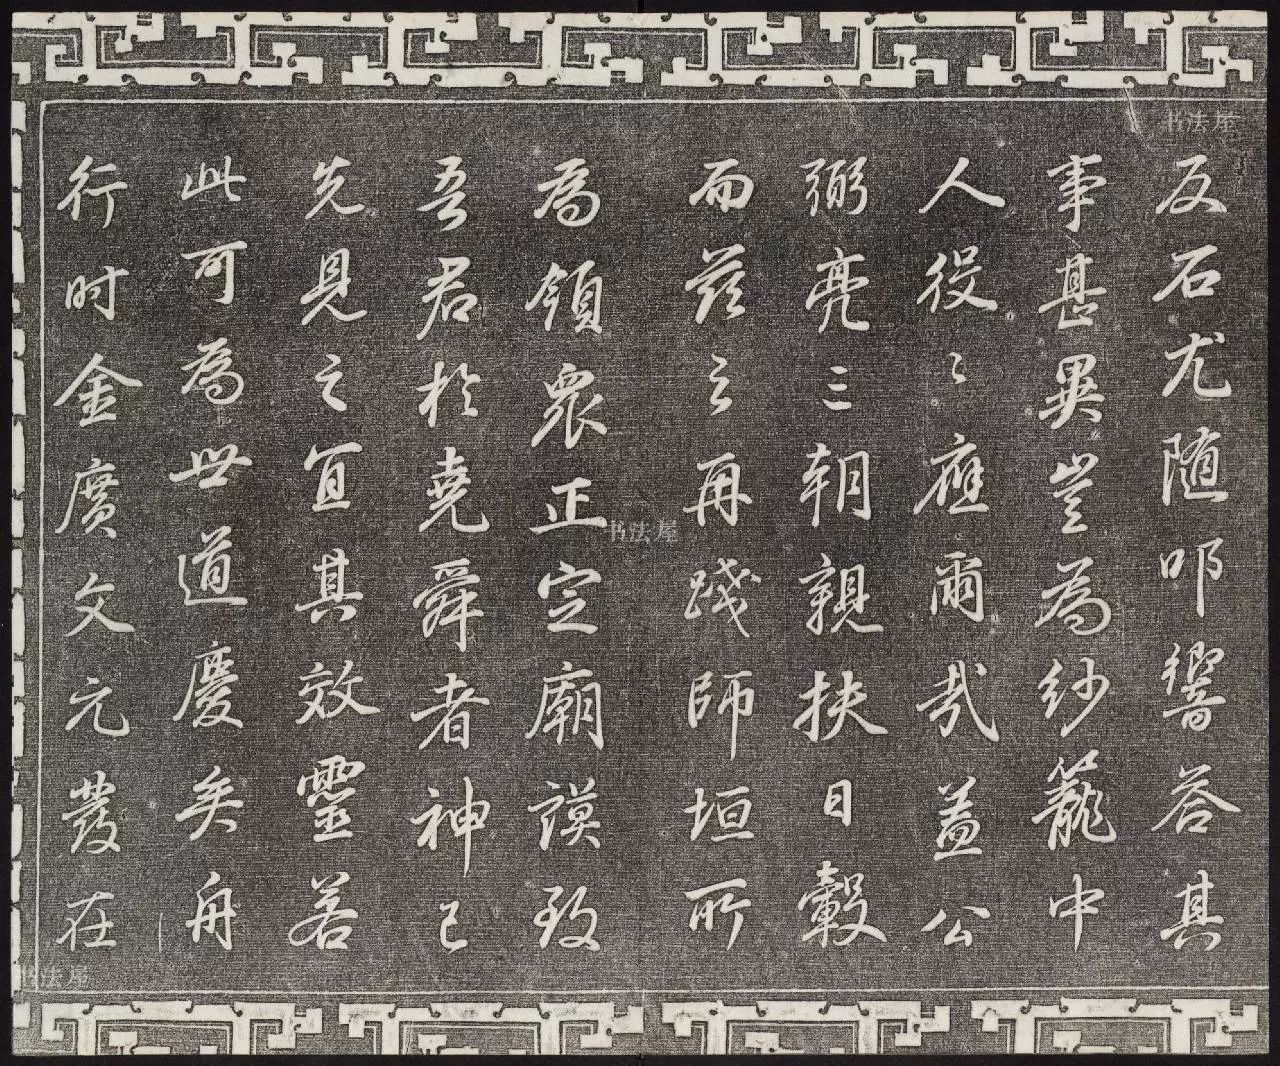 反石尤随叩響答其
事甚異豈為紗籠中
人役〻應爾哉蓋公
弼亮三朝親扶日轂
而茲之再践師垣所
為領衆正定廟謨致
吾君於堯舜者神已
先見之宜其效靈若
此可為世道慶矣舟
行时金廣文元發在
书法屋
书法屋
书法屋